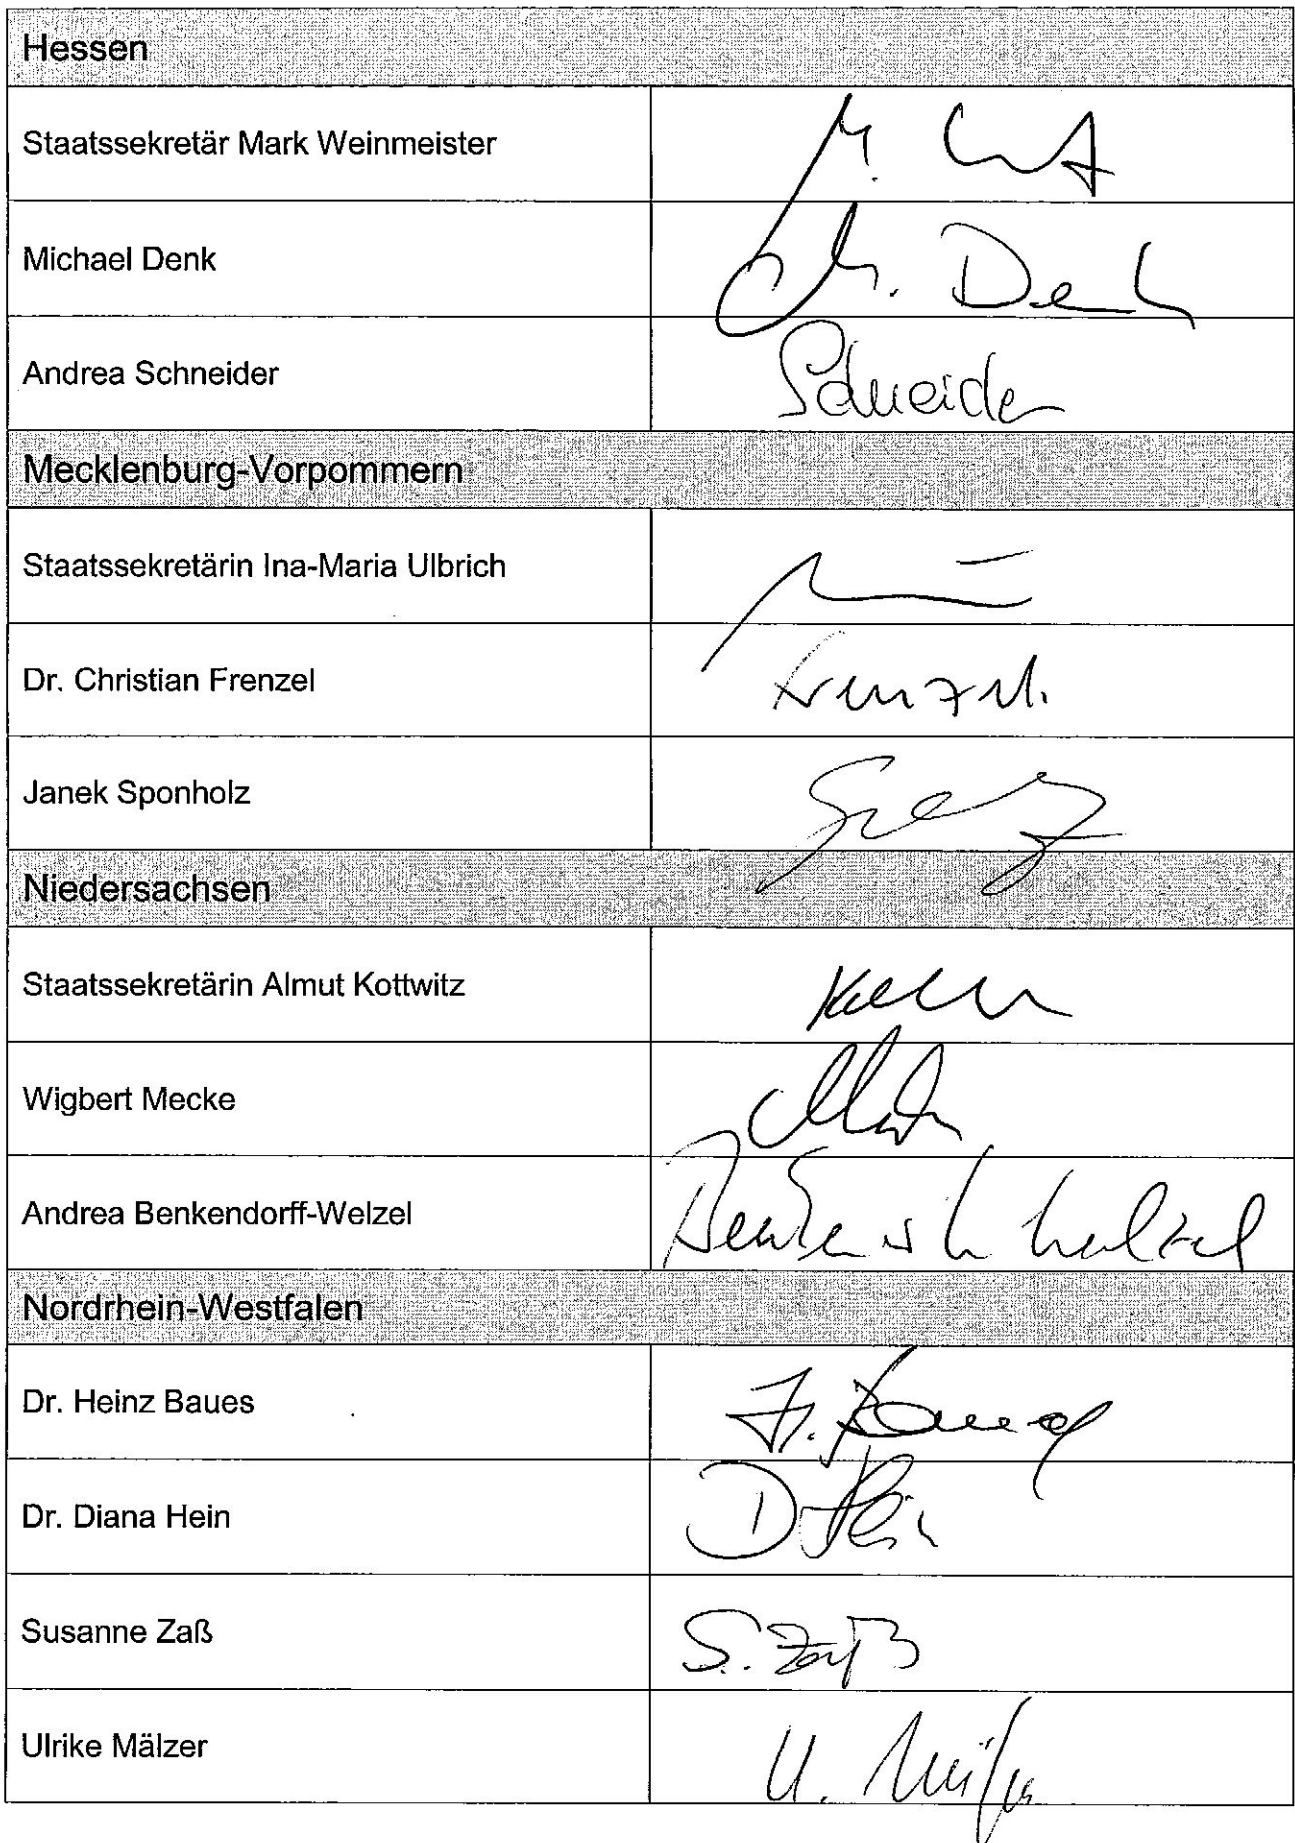 Hessen
Staatssekretär Mark Weinmeister
Michael Denk M. Denk
Andrea Schneider Schneider
Mecklenburg-Vorpommern
Staatssekretärin Ina-Maria Ulbrich
Dr. Christian Frenzel Frenzel
Janek Sponholz
Niedersachsen
Staatssekretärin Almut Kottwitz
Wigbert Mecke
Andrea Benkendorff-Welzel
Nordrhein-Westfalen
Dr. Heinz Baues H. Baues
Dr. Diana Hein D. Hein
Susanne Zaß S. Zaß
Ulrike Mälzer U. Mälzer